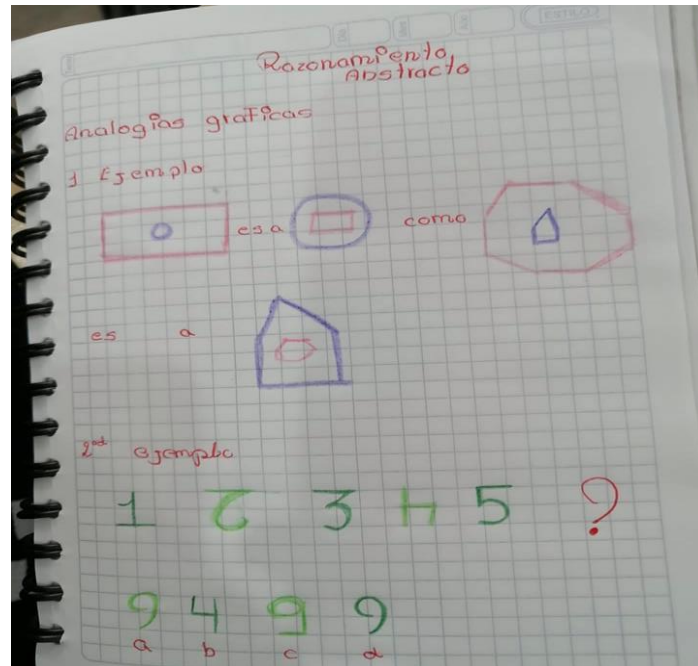 Razonamiento
Abstracto
Analogías graficas
1 Ejemplo
es a como
es a
2do ejemplo
1 2 3 4 5 ?
9 4 6 9
a b c d